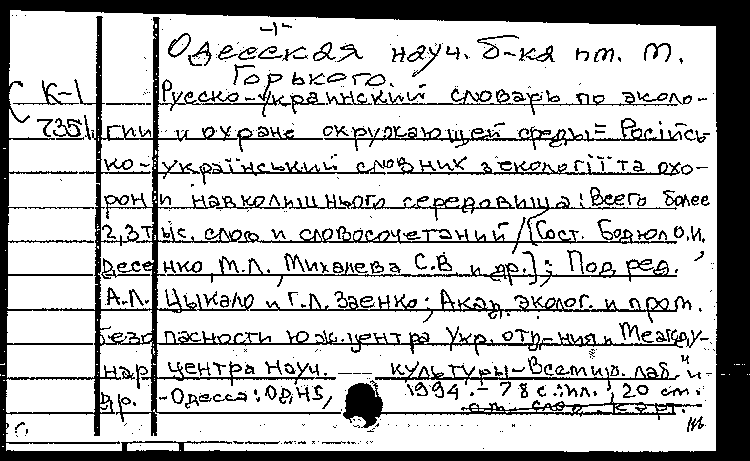 -1-
Одесская науч. б-ка им. М.
Горького.
К-1 Русско-украинский словарь по эколо-
7351 гии и охране окружающей среды = Російсь-
ко-український словник з екології та охо-
рони навколишнього середовища: Всего более
2,3 тыс. слов и словосочетаний / [Сост. Бодюл О.И.,
Десенко, М.Л., Михалева С.В. и др.]; Под ред.
А.Л. Цыкало и Г.Л. Заенко; Акад. эколог. и пром.
безопасности Юж. центра Укр. отд-ния и Междy-
нар центра науч. культуры-Всемир. лаб." и
др. -Одесса: ОДНБ, 1994.- 78 с.: ил.; 20 см.